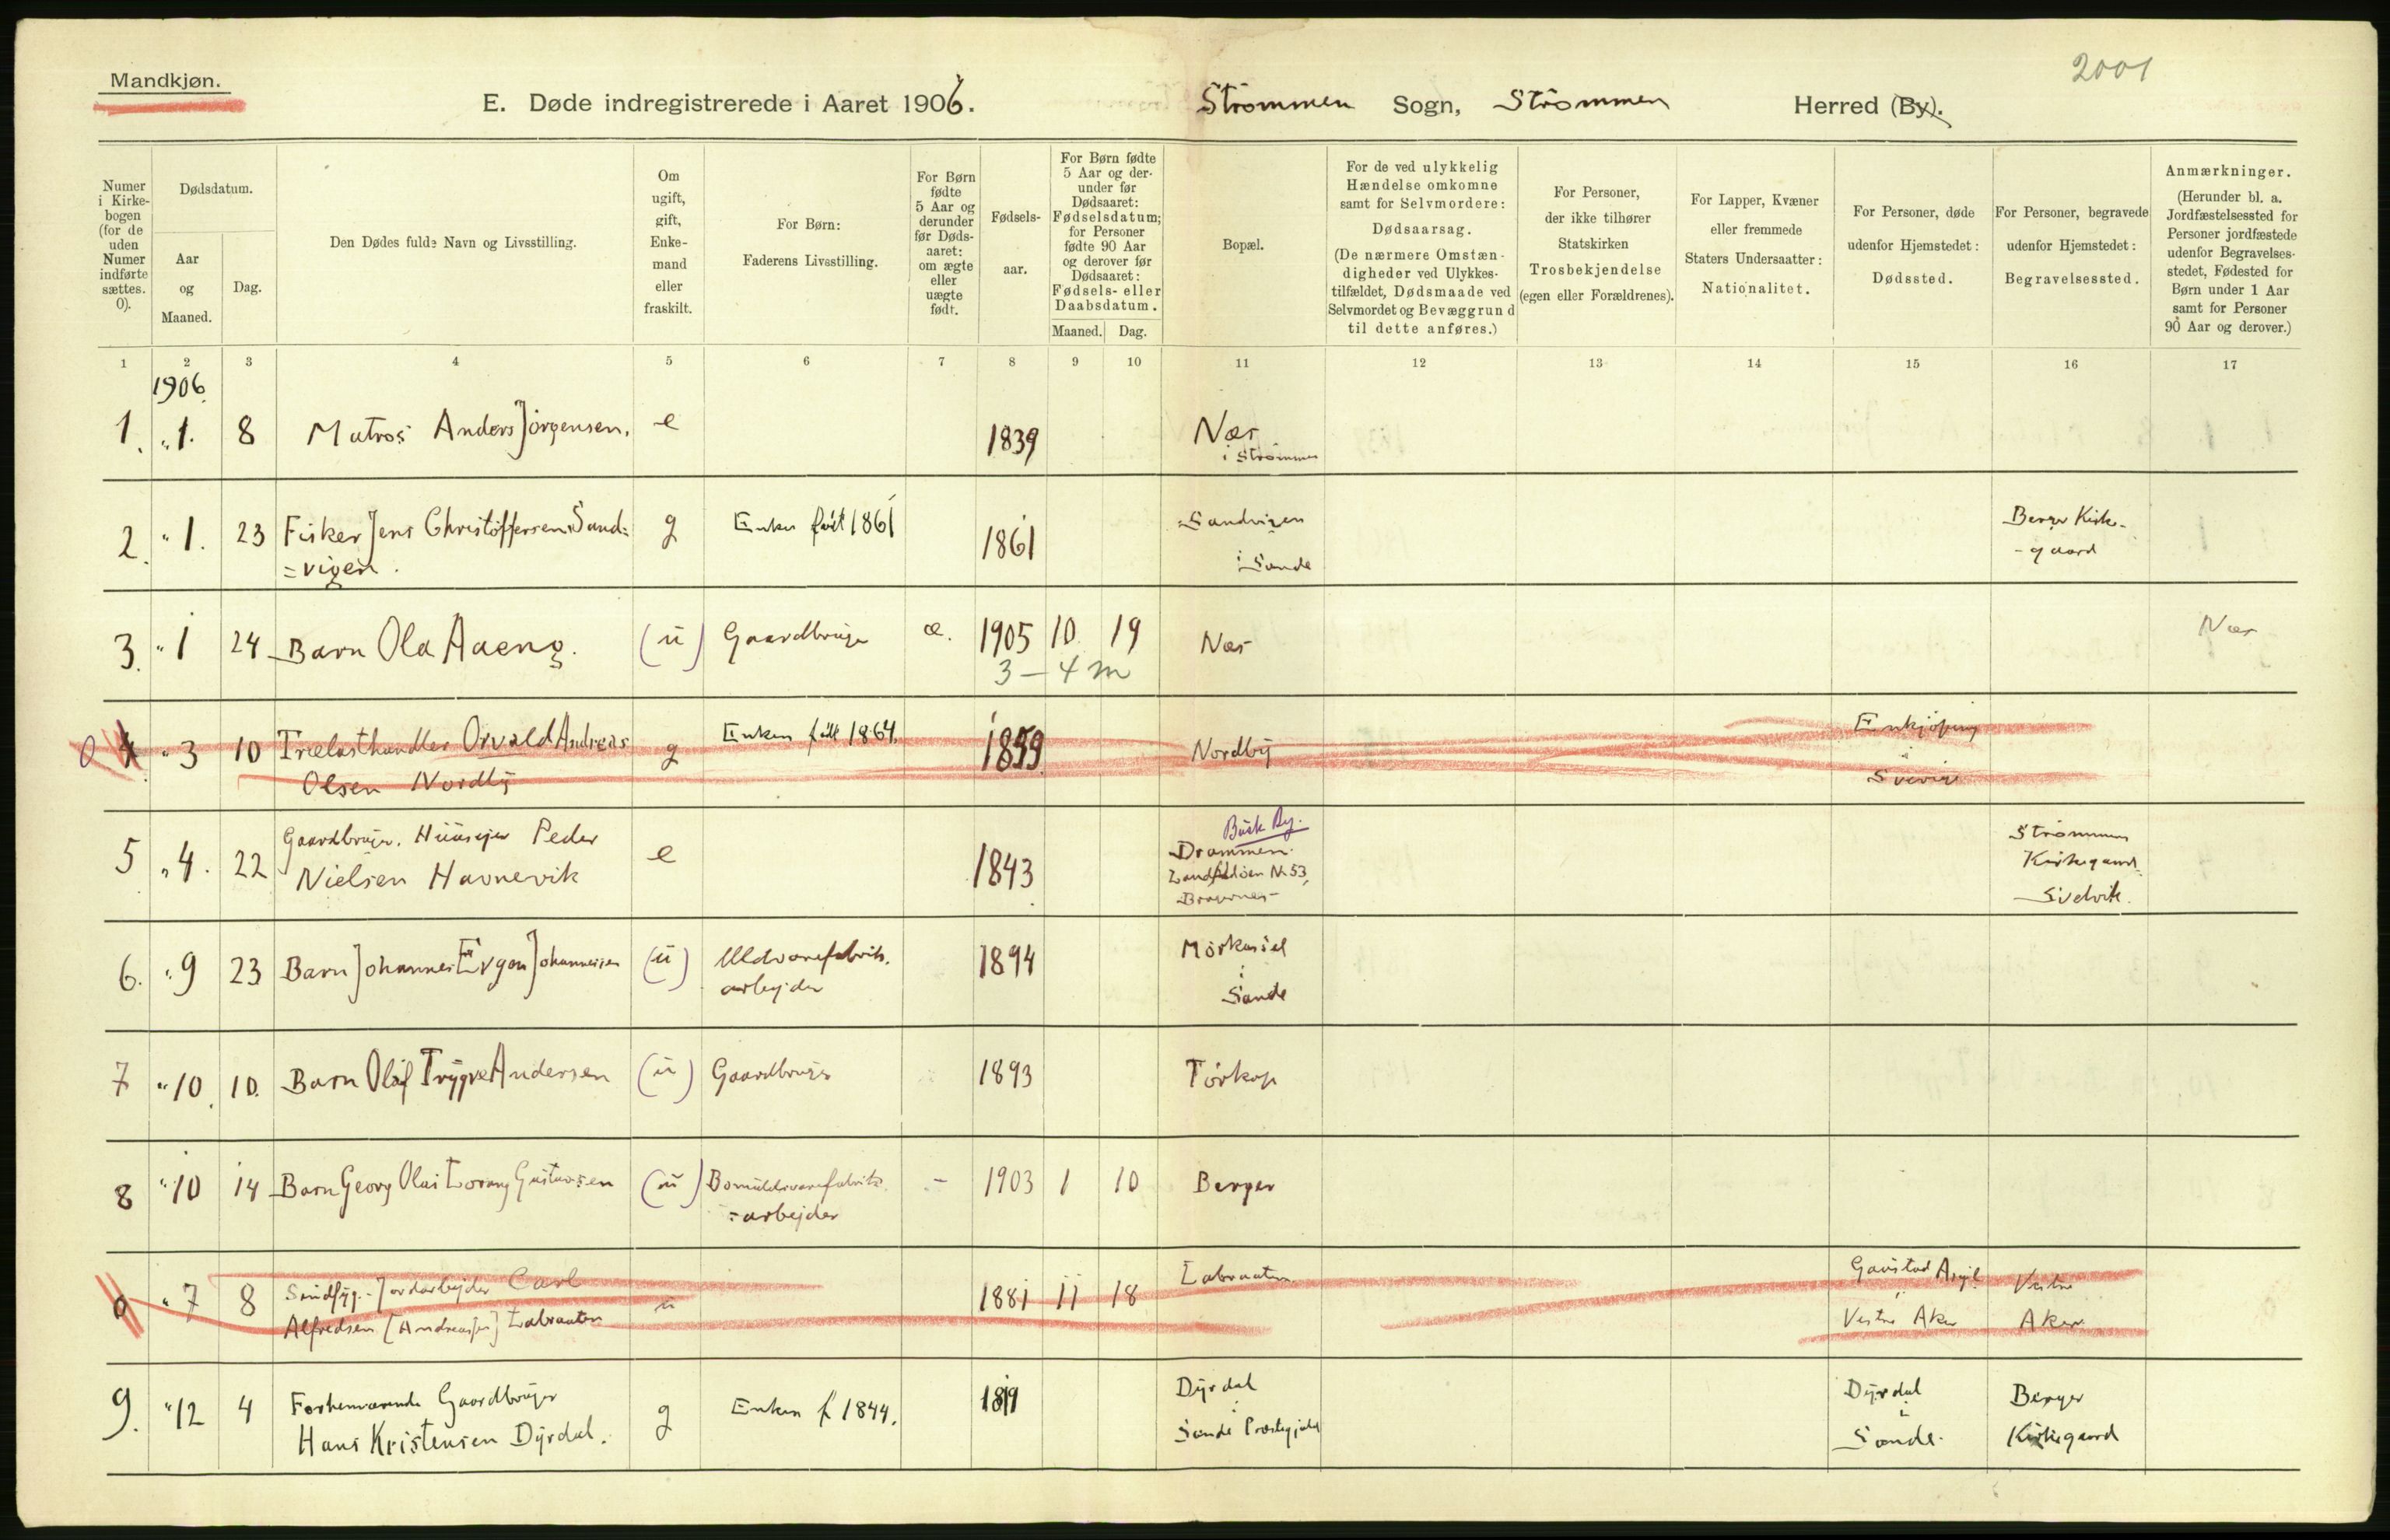 Mandkjøn.
2001
E. Døde indregistrerede i Aaret 1906. Strömmen Sogn, Strömmen Herred (By).
Numer i Kirkebogen (for de uden Numer indførte sættes. 0).
Dødsdatum.
Aar og Maaned.
Dag.
Den Dødes fulde Navn og Livsstilling.
Om ugift, gift, Enkemand eller fraskilt.
For Børn: Faderens Livsstilling.
For Børn fødte 5 Aar og derunder før Dødsaaret: om ægte eller uægte født.
Fødselsaar.
For Børn fødte 5 Aar og derunder før Dødsaaret: Fødselsdatum; for Personer fødte 90 Aar og derover før Dødsaaret: Fødsels- eller Daabsdatum.
Maaned. Dag.
Bopæl.
For de ved ulykkelig Hændelse omkomne samt for Selvmordere: Dødsaarsag. (De nærmere Omstændigheder ved Ulykkestilfældet, Dødsmaade ved Selvmordet og Bevæggrund til dette anføres.)
For Personer, der ikke tilhører Statskirken Trosbekjendelse (egen eller Forældrenes).
For Lapper, Kvæner eller fremmede Staters Undersaatter: Nationalitet.
For Personer, døde udenfor Hjemstedet: Dødssted.
For Personer, begravede udenfor Hjemstedet: Begravelsessted.
Anmærkninger. (Herunder bl. a. Jordfæstelsessted for Personer jordfæstede udenfor Begravelsesstedet, Fødested for Børn under 1 Aar samt for Personer 90 Aar og derover.)
1 2 3 4 5 6 7 8 9 10 11 12 13 14 15 16 17
1906.
1. " 1. 8 Matros Anders Jörgensen. e 1839 Nær
i Strömmen
2. " 1. 23 Fisker Jens Christoffersen Sand= g Enken født 1861 1861 Sandvigen Berger Kirke-
=vigen. i Sande -gaard
3. " 1 24 Barn Ola Aaeng. (u) Gaardbruger æ. 1905 10 19 Nær Nær
3-4 m
0 4 " 3 10 Trælasthandler Orvald Andreas g Enken født 1864. 1859 Nordby Enkjöping
Olsen Nordby i Sverige
5 " 4. 22 Gaardbruger, Huusejer Peder e 1843 Busk By. Strömmens
Nielsen Havnevik Drammen. Kirkegaard
N. 53, Svelvik.
Bragernes
6. " 9 23 Barn Johannes Johannessen (u) Uldvarefabrik. 1894 Mörkassel
arbejder i Sande
7 " 10. 10. Barn Olaf Trygve Andersen (u) Gaardbruger 1893 Törkop
8 " 10 14 Barn Georg Olai Lorang Gustavsen (u) Bomuldsvarefabrik. - 1903 1 10 Berger
=arbejder
0 " 7 8 Sindsyg. Jordarbejder Carl u 1881 11 18 Labraaten Gaustad Asyl Vestre
Alfredsen [Andreassen] Labraaten Vestre Aker Aker
9. " 12 4 Forhenværende Gaardbruger g Enken f 1844. 1819 Dyrdal Dyrdal Berger
Hans Kristensen Dyrdal. i Sande Præstegjeld i Sande. Kirkegaard